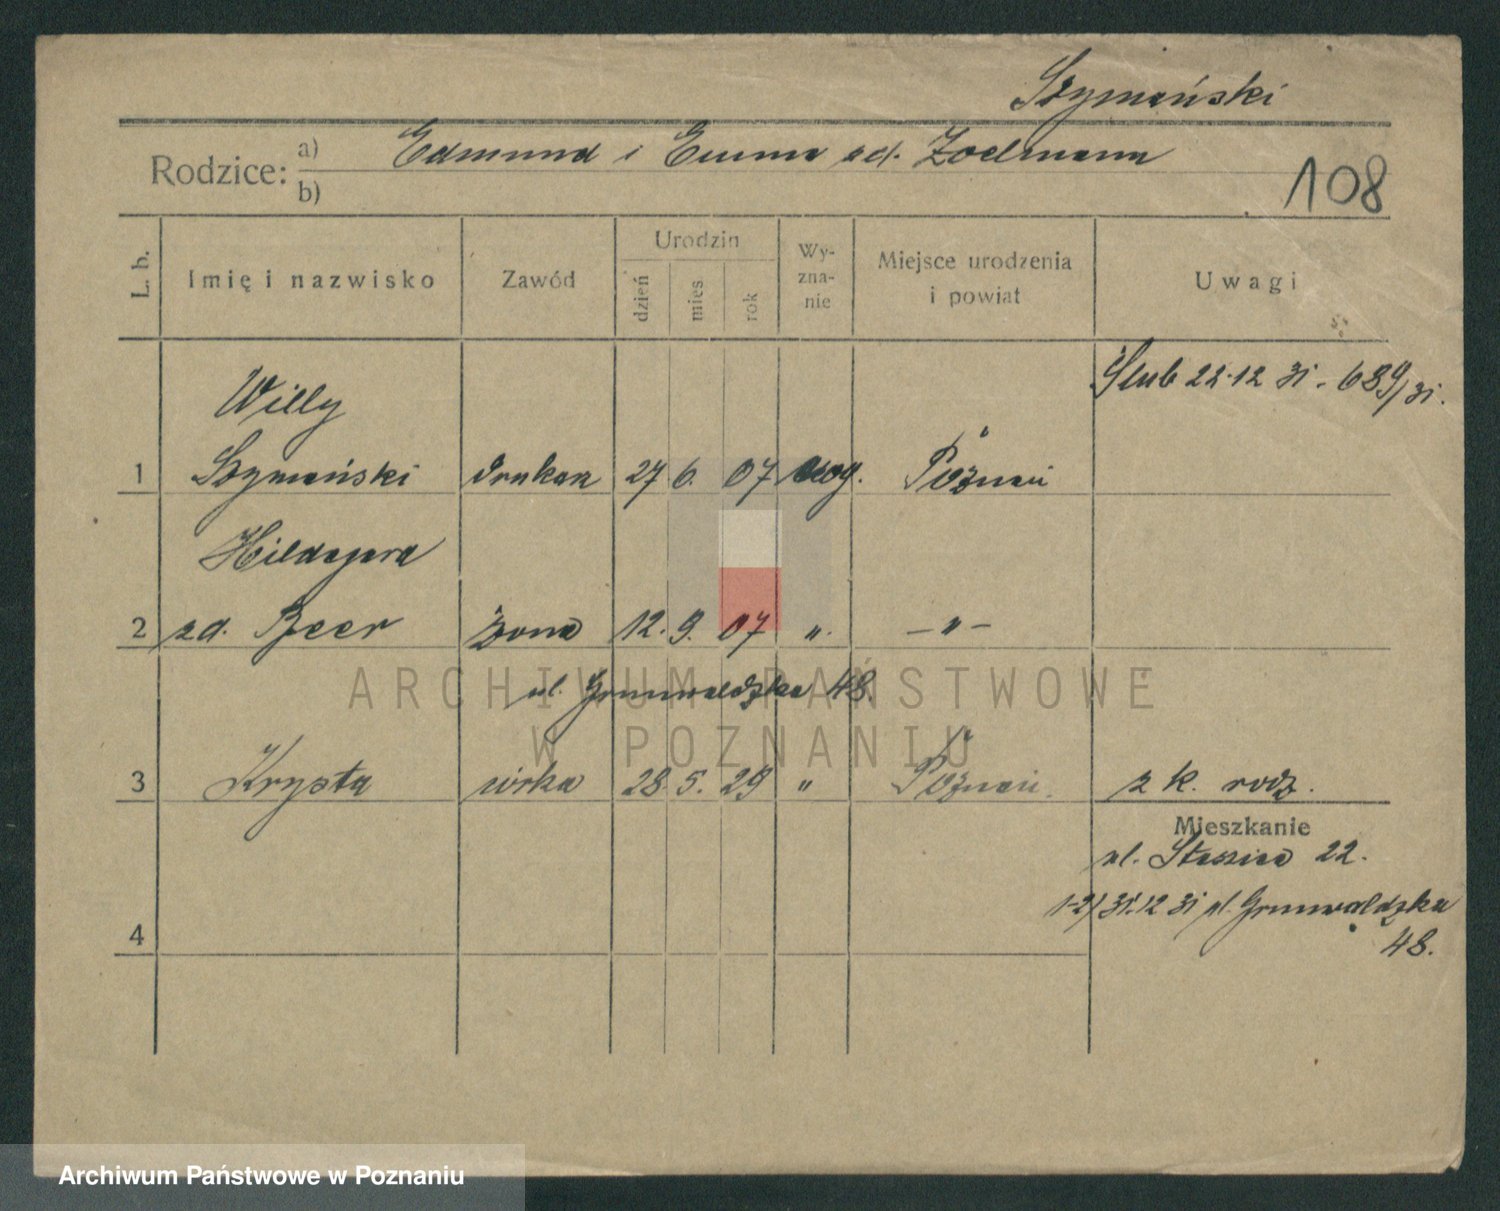 Szymański
Rodzice: a) Edmund i Emma zd. Zoelmann
b)
108
L. b.
Imię i nazwisko
Zawód
Urodzin
dzień
mies
rok
Wy-
zna-
nie
Miejsce urodzenia
i powiat
Uwagi
Ślub 22.12 31. 689/31.
Willy
1 Szymański drukarz 27 6. 07 Poznań
Hildegara
2 zd. Beer żona 12. 9. 07 ". — " —
ul. Grunwaldzka 48.
3 Krysta córka 28 5. 29 " Poznań. z k. rodz.
Mieszkanie
ul. Staszica 22.
1-2/31.12 31 ul. Grunwaldzka
48.
4
ARCHIWUM PAŃSTWOWE
W POZNANIU
Archiwum Państwowe w Poznaniu